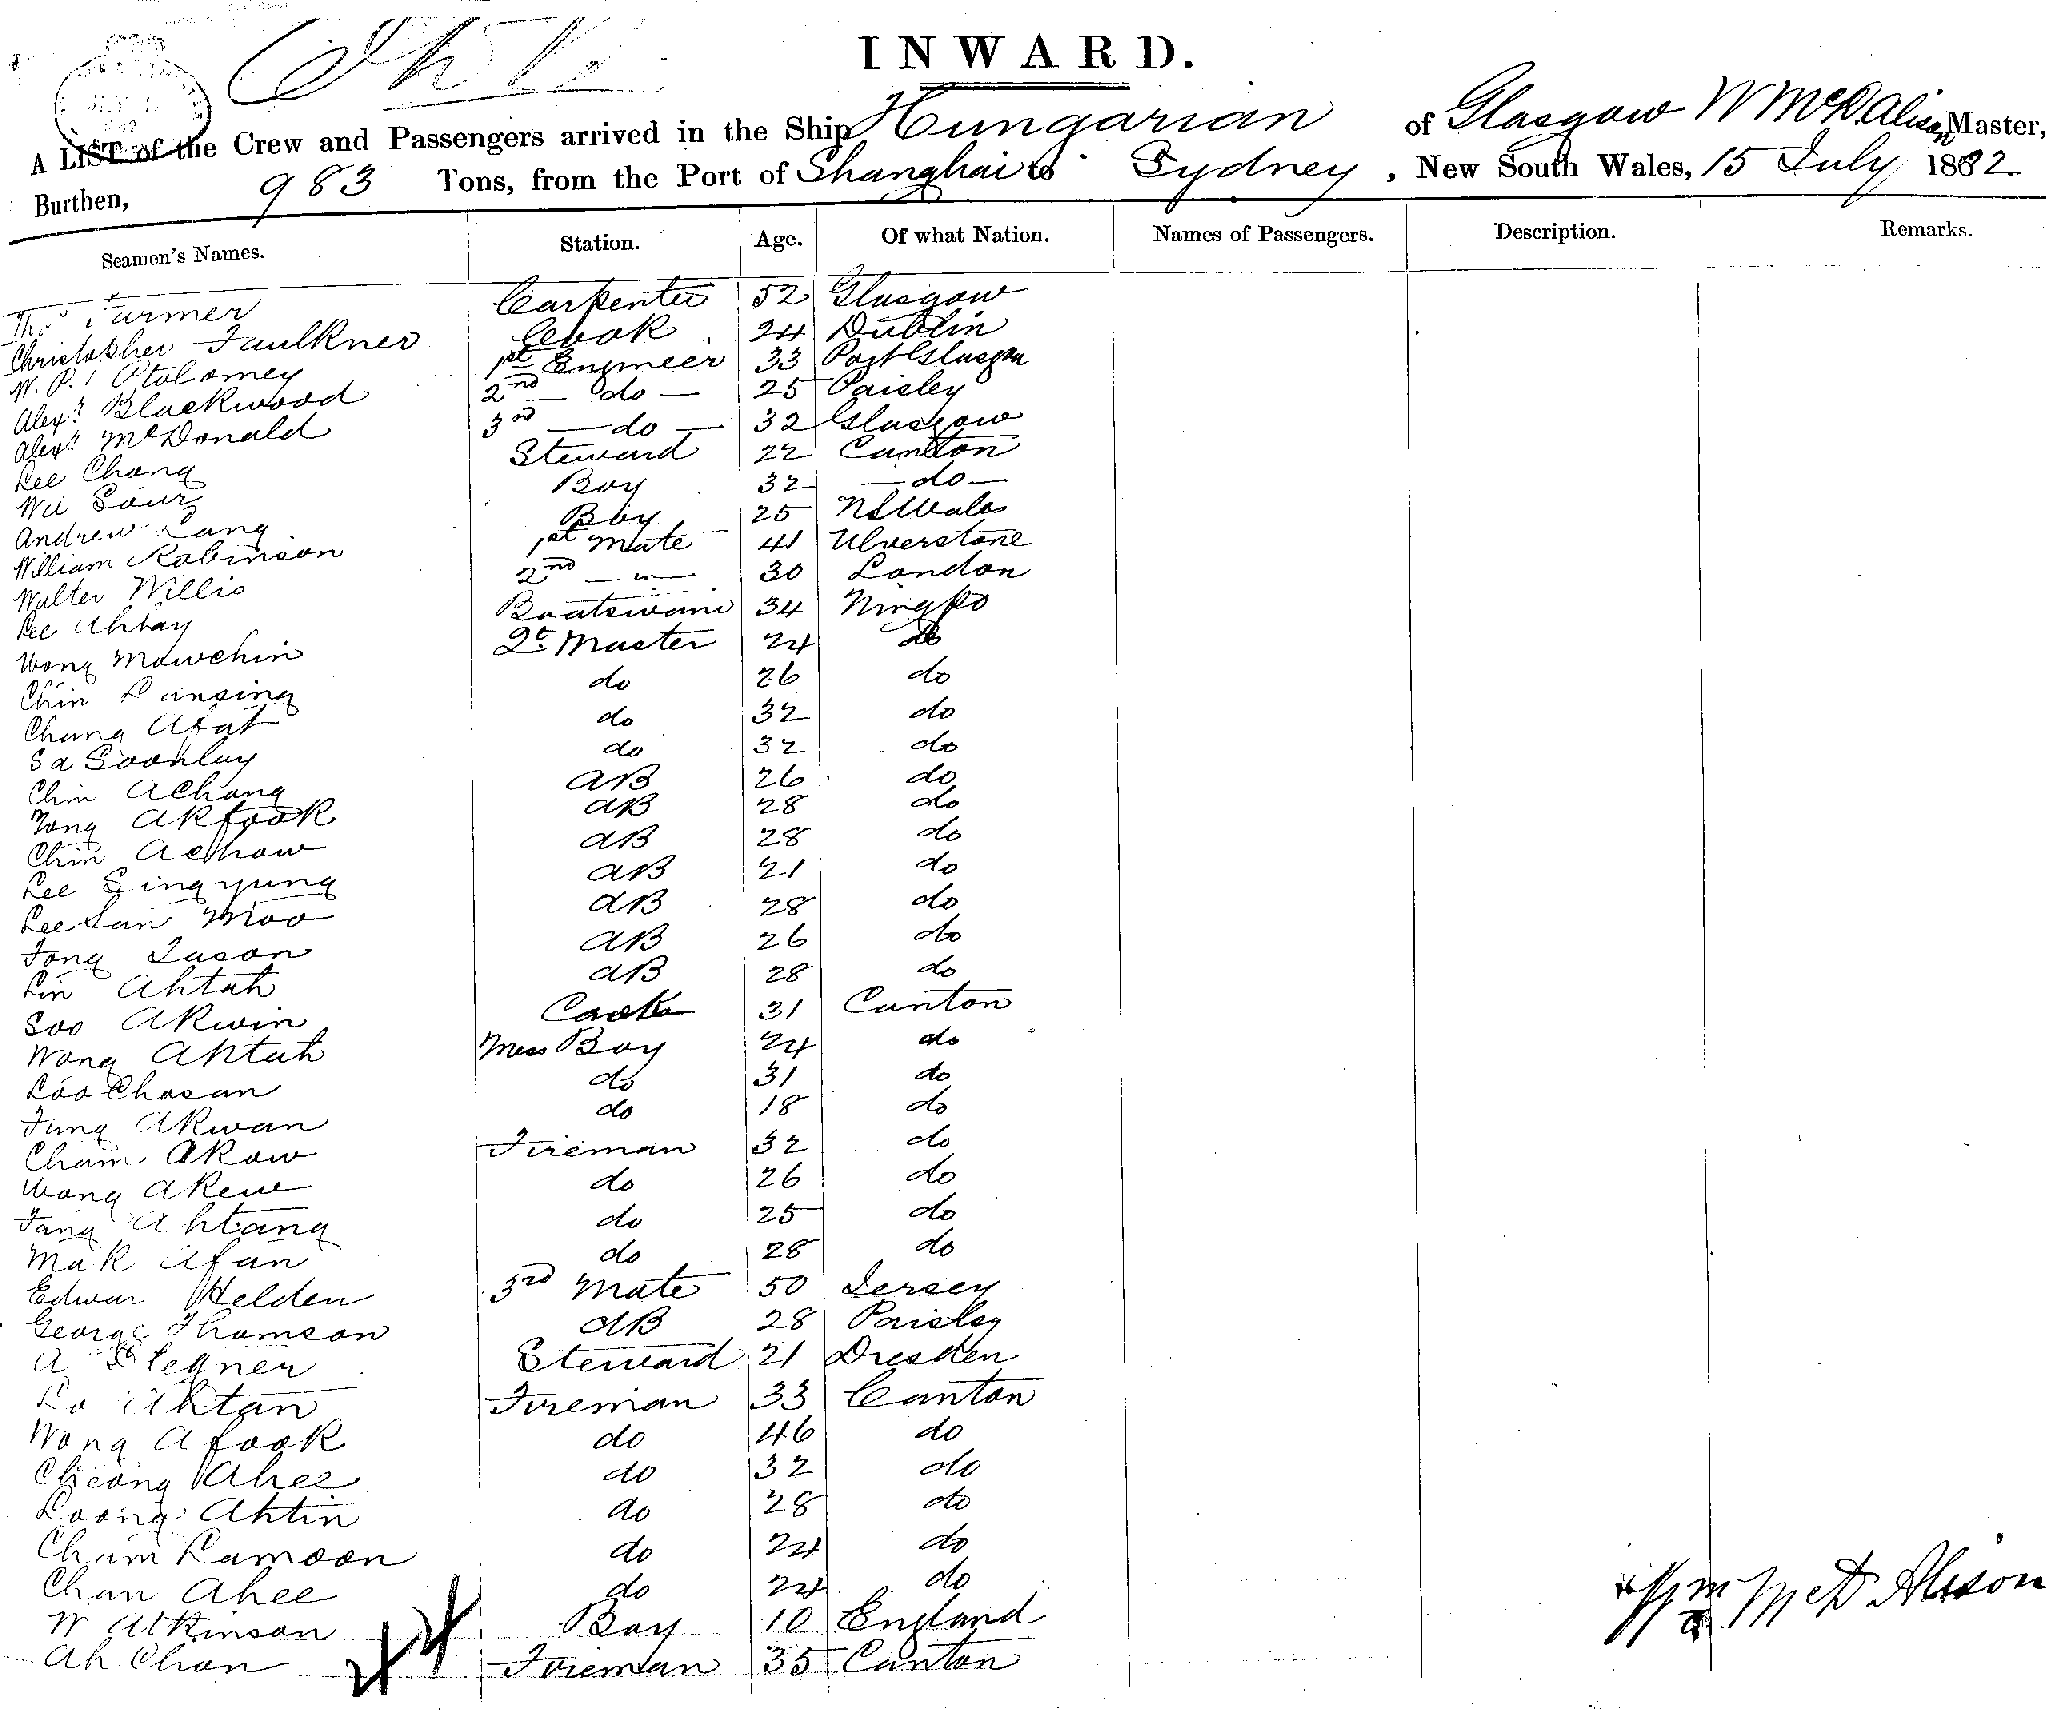 INWARD.
A LIST of the Crew and Passengers arrived in the Ship Hungarian of Glasgow W McD Alison Master,
Burthen, 983 Tons, from the Port of Shanghai to Sydney, New South Wales, 15 July 1882
Seamen's Names. Station. Age. Of what Nation. Names of Passengers. Description. Remarks.
Thos Farmer Carpenter 52 Glasgow
Christopher Faulkner Cook 24 Dublin
W. P. Ptolomey 1st Engineer 33 Port Glasgow
Alexr Blackwood 2nd — do — 25 Paisley
Alexr McDonald 3rd — do — 32 Glasgow
Lee Chong Steward 22 Canton
Boy 32 — do —
Andrew Lang Boy 25 NSWales
William Robinson 1st Mate 41 Ulverstone
Walter Willis 2nd — " — 30 London
Lee Ahtay Boatswain 34 Ningpo
Wong Mowchin Qt Master 24 do
Chin Lansing do 26 do
Chang Afat do 32 do
Sa Soonlay do 32 do
Chin Achang AB 26 do
Tong Akfook AB 28 do
Chin Achow AB 28 do
Lee Singyung AB 21 do
Lee San Moo AB 28 do
Fong Sason AB 26 do
Lin Ahtah AB 28 do
Soo Akwin Cook 31 Canton
Wong Ahtah Mess Boy 24 do
Loo Chasan do 31 do
Fung Akwan do 18 do
Cham Akow Fireman 32 do
Wong Akew do 26 do
Fang Ahtang do 25 do
Mak Afan do 28 do
Edwar Helden 3rd Mate 50 Jersey
George Thomson AB 28 Paisley
A Steward 21 Dresden
Lo Ahtan Fireman 33 Canton
Wong Afook do 46 do
Cheong Ahee do 32 do
Loong Ahtin do 28 do
Cham Lamoon do 24 do
Chan Ahee do 24 do
W Atkinson Boy 10 England
Ah Chan Fireman 35 Canton
44
Wm McD Alison